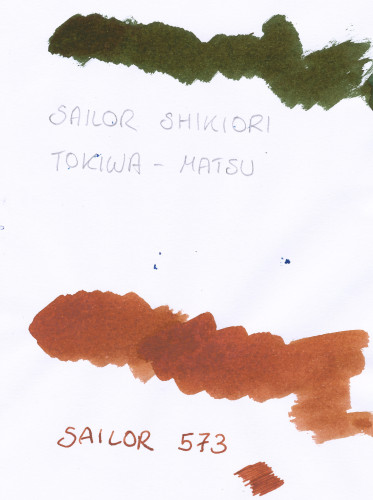 SAILOR SHIKIORI
TOKIWA - MATSU
SAILOR 573